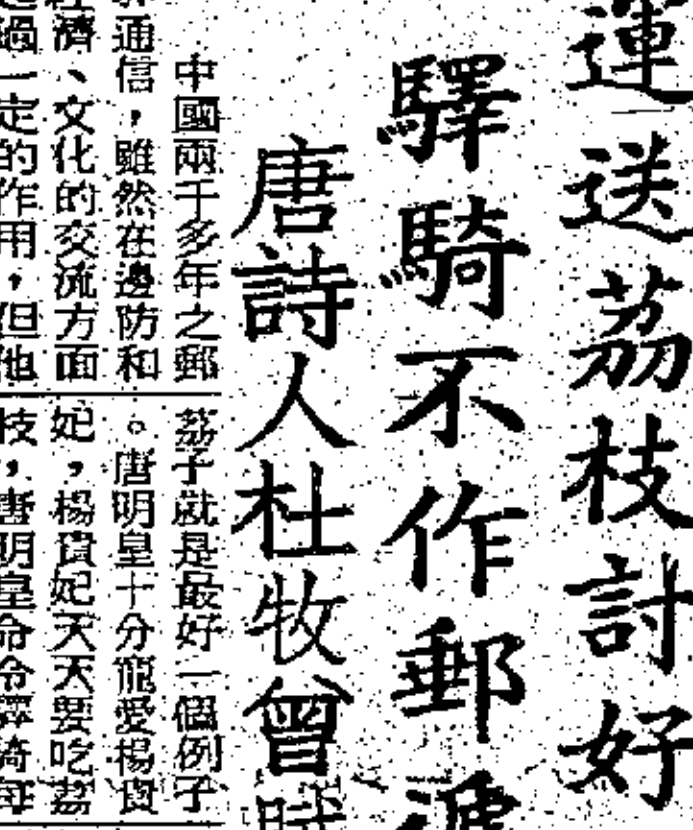 運送荔枝討好
驛騎不作郵遞
唐詩人杜牧曾賦
中國兩千多年之郵
通信，雖然在邊防和
經濟、文化的交流方面
過一定的作用，但他
荔子就是最好一個例子
。唐明皇十分寵愛楊貴
妃，楊貴妃天天要吃荔
枝，唐明皇命令驛騎每